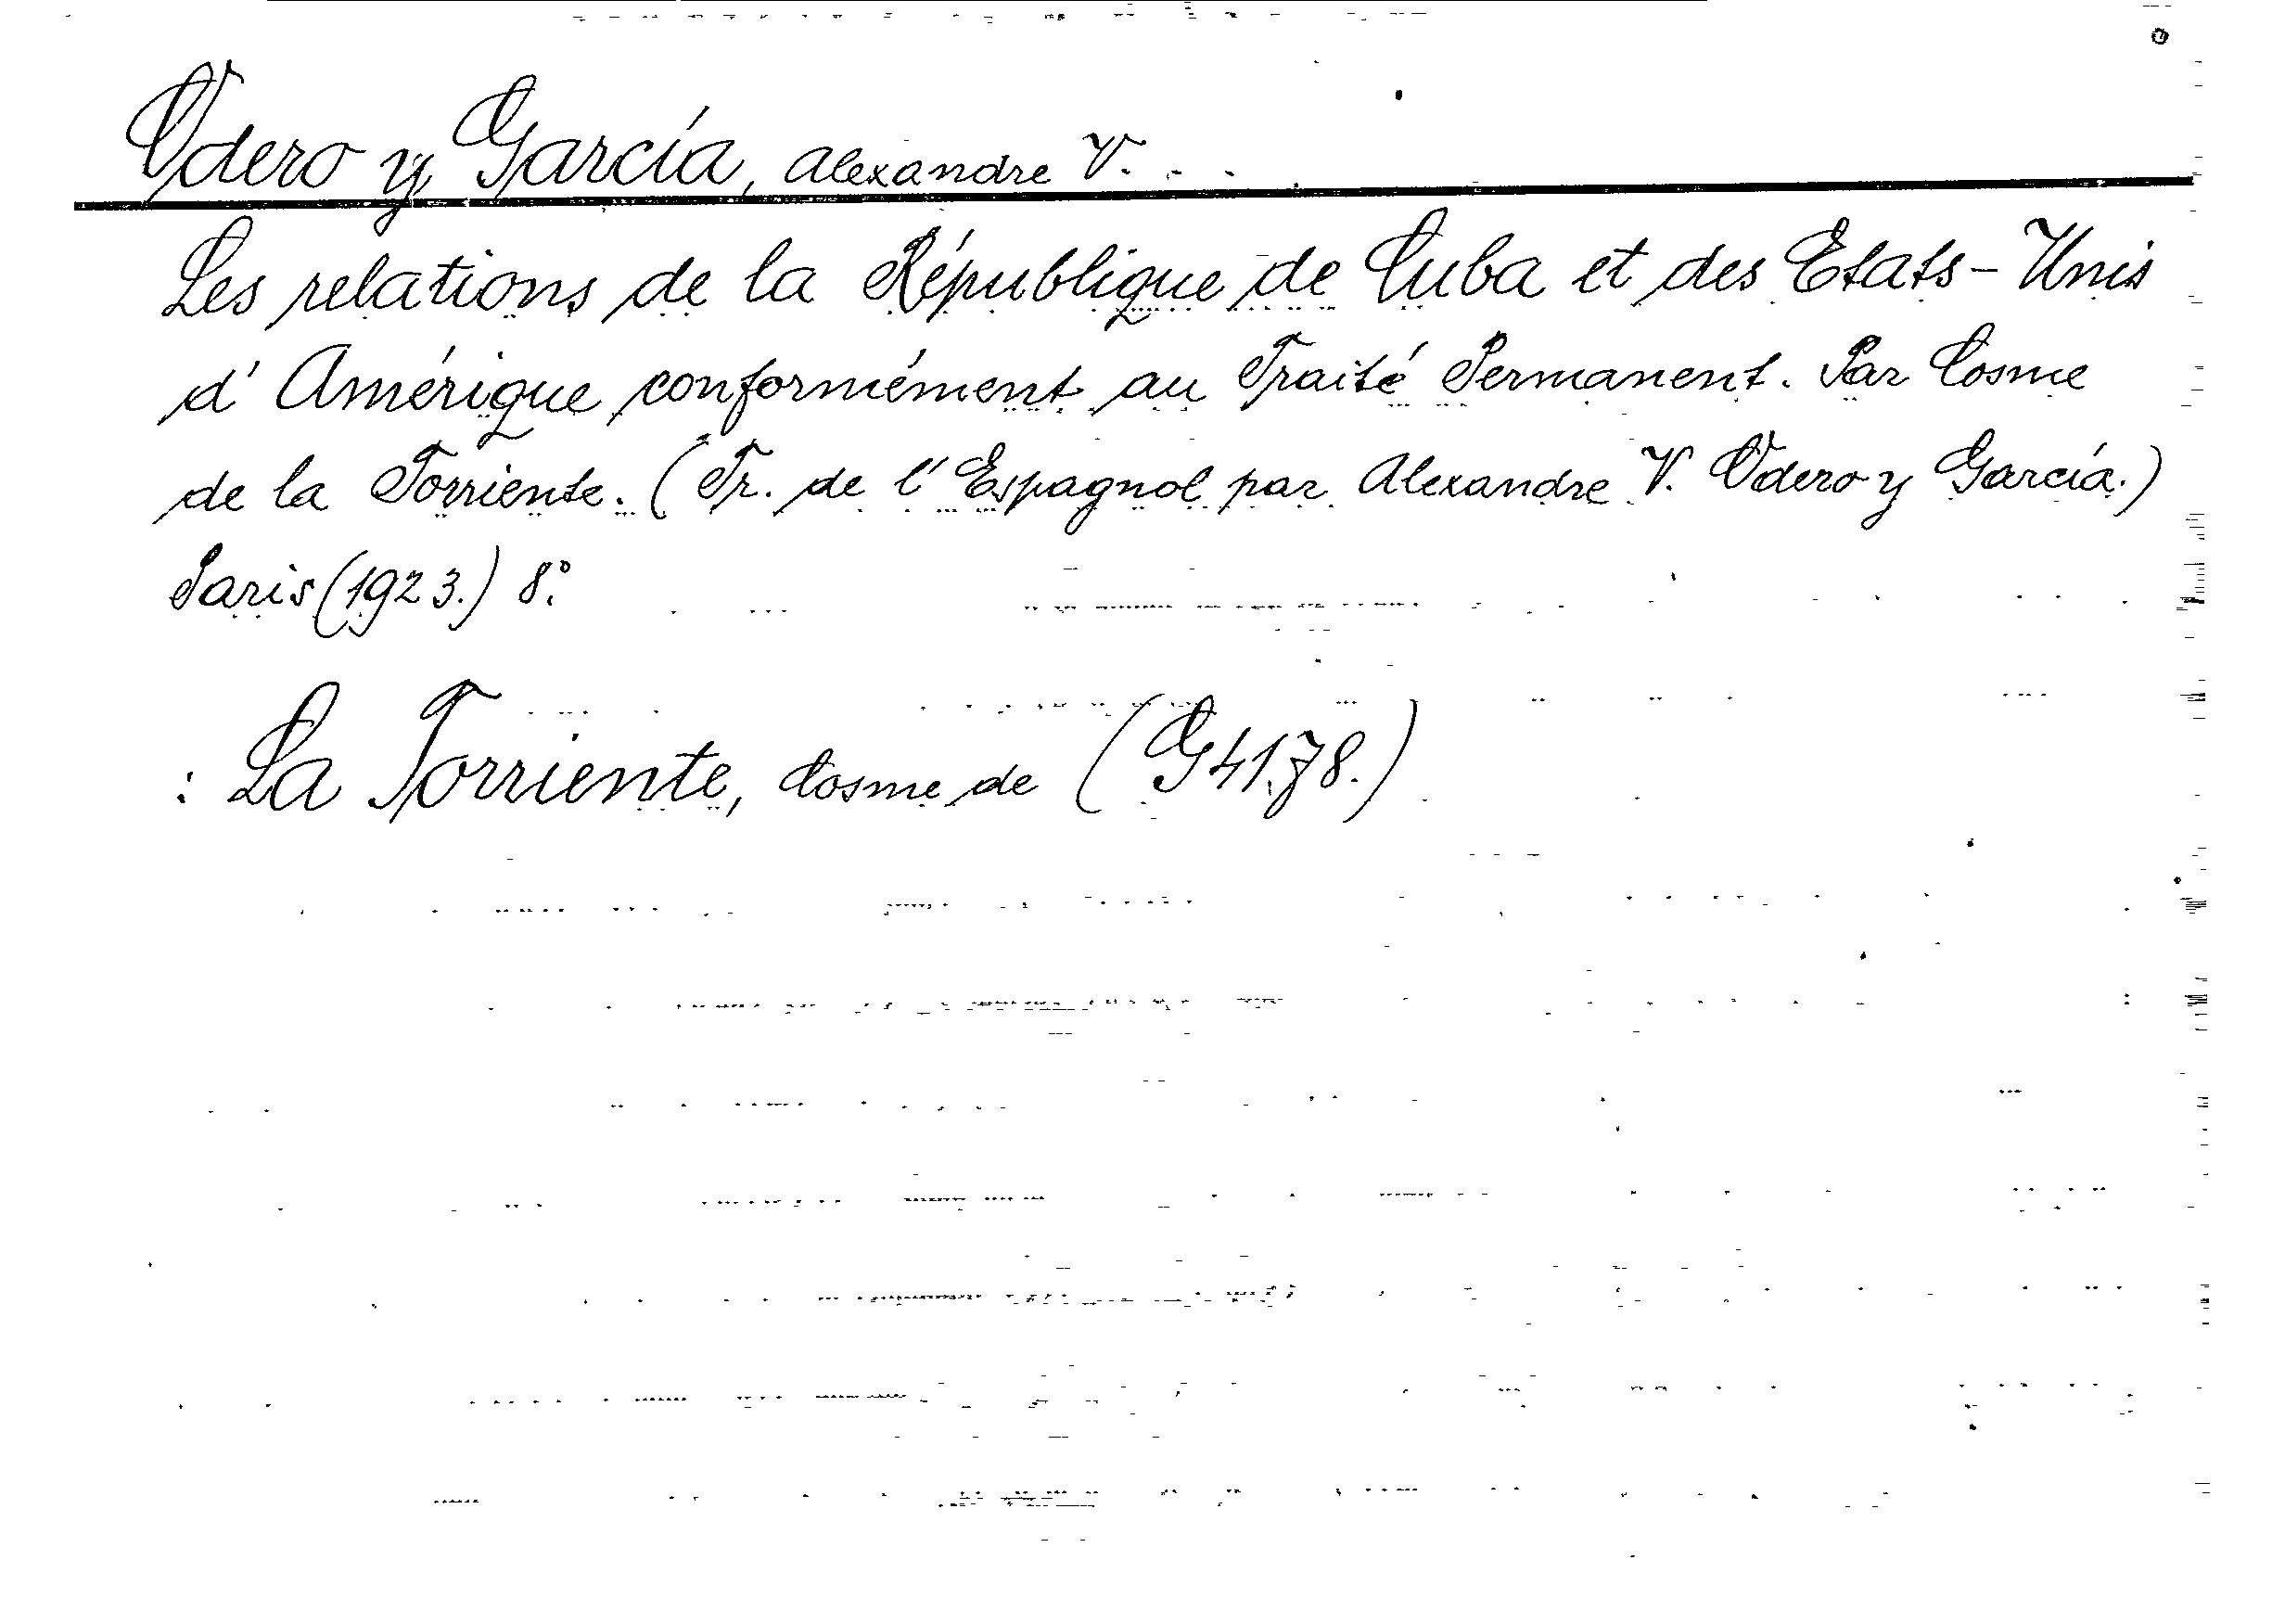 Odero y García, Alexandre V. . .
Les relations de la République de Cuba et des Etats-Unis
d'Amérique conformément au Traité Permanent. Par Cosme
de la Torriente. (Tr. de l'Espagnol par Alexandre V. Odero y García.)
Paris (1923.) 8:°
: La Torriente, Cosme de (G 41.78.)